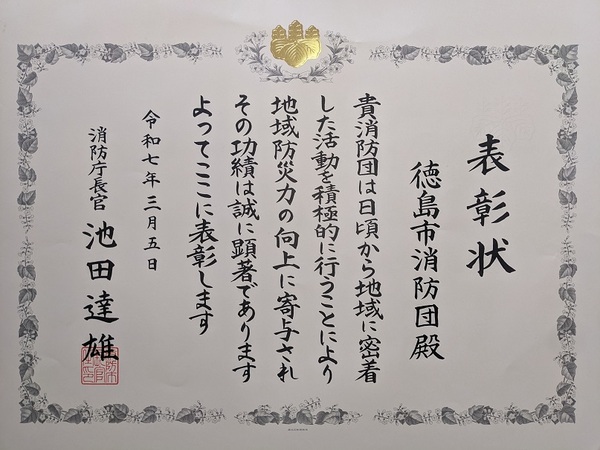 表彰状
徳島市消防団殿
貴消防団は日頃から地域に密着
した活動を積極的に行うことにより
地域防災力の向上に寄与され
その功績は誠に顕著であります
よってここに表彰します
令和七年三月五日
消防庁長官 池田達雄